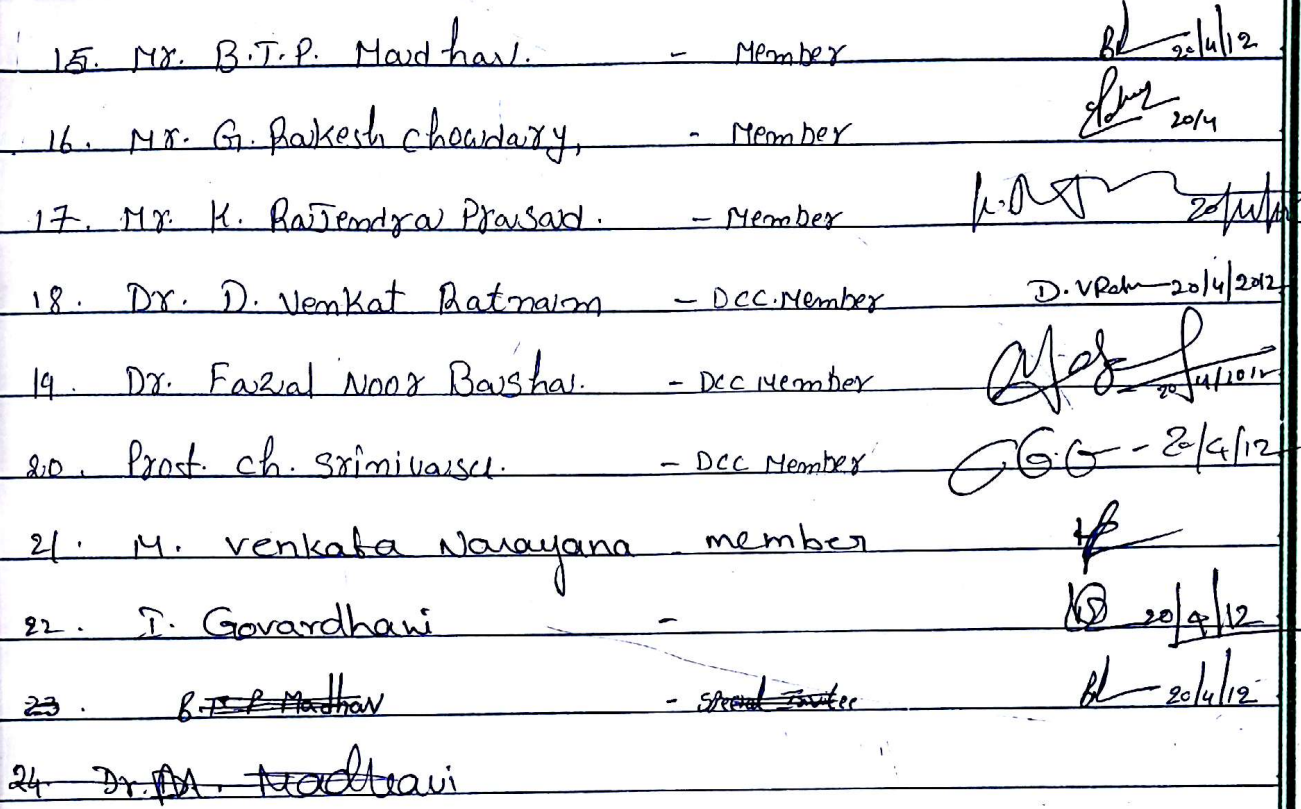 15. Mr. B.T.P. Madhav. - Member 20/4/12
16. Mr. G. Rakesh Chowdary, - Member 20/4
17. Mr. K. Rajendra Prasad. - Member
18. Dr. D. Venkat Ratnam - DCC.Member D.V 20/4/2012
19. Dr. Fazal Noor Basha. - DCC Member 20/4/2012
20. Prof. ch. Srinivasu. - DCC Member - 20/4/12
21. M. Venkata Narayana - member
22. I. Govardhani - 20/4/12
23. B.T.P Madhav - Special Invitee 20/4/12
24. Dr. M. Madhavi